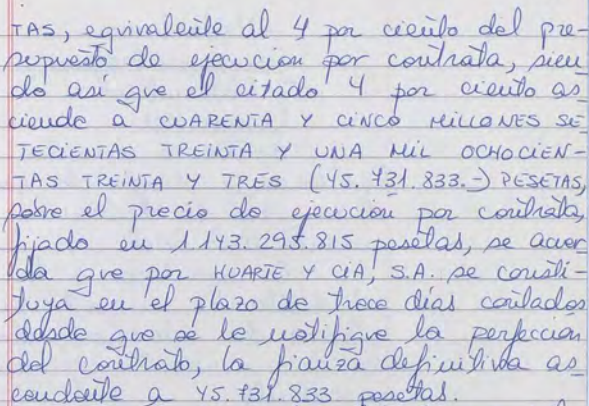 TAS, equivalente al 4 por ciento del pre-
supuesto de ejecución por contrata, sien
do así que el citado 4 por ciento as
ciende a CUARENTA Y CINCO MILLONES SE
TECIENTAS TREINTA Y UNA MIL OCHOCIEN-
TAS TREINTA Y TRES (45.731.833.-) PESETAS,
sobre el precio de ejecución por contrata,
fijado en 1.143.295.815 pesetas, se acuer
da que por HUARTE Y CIA, S.A. se consti-
tuya en el plazo de trece días contados
desde que se le notifique la perfección
del contrato, la fianza definitiva as
cendente a 45.731.833 pesetas.